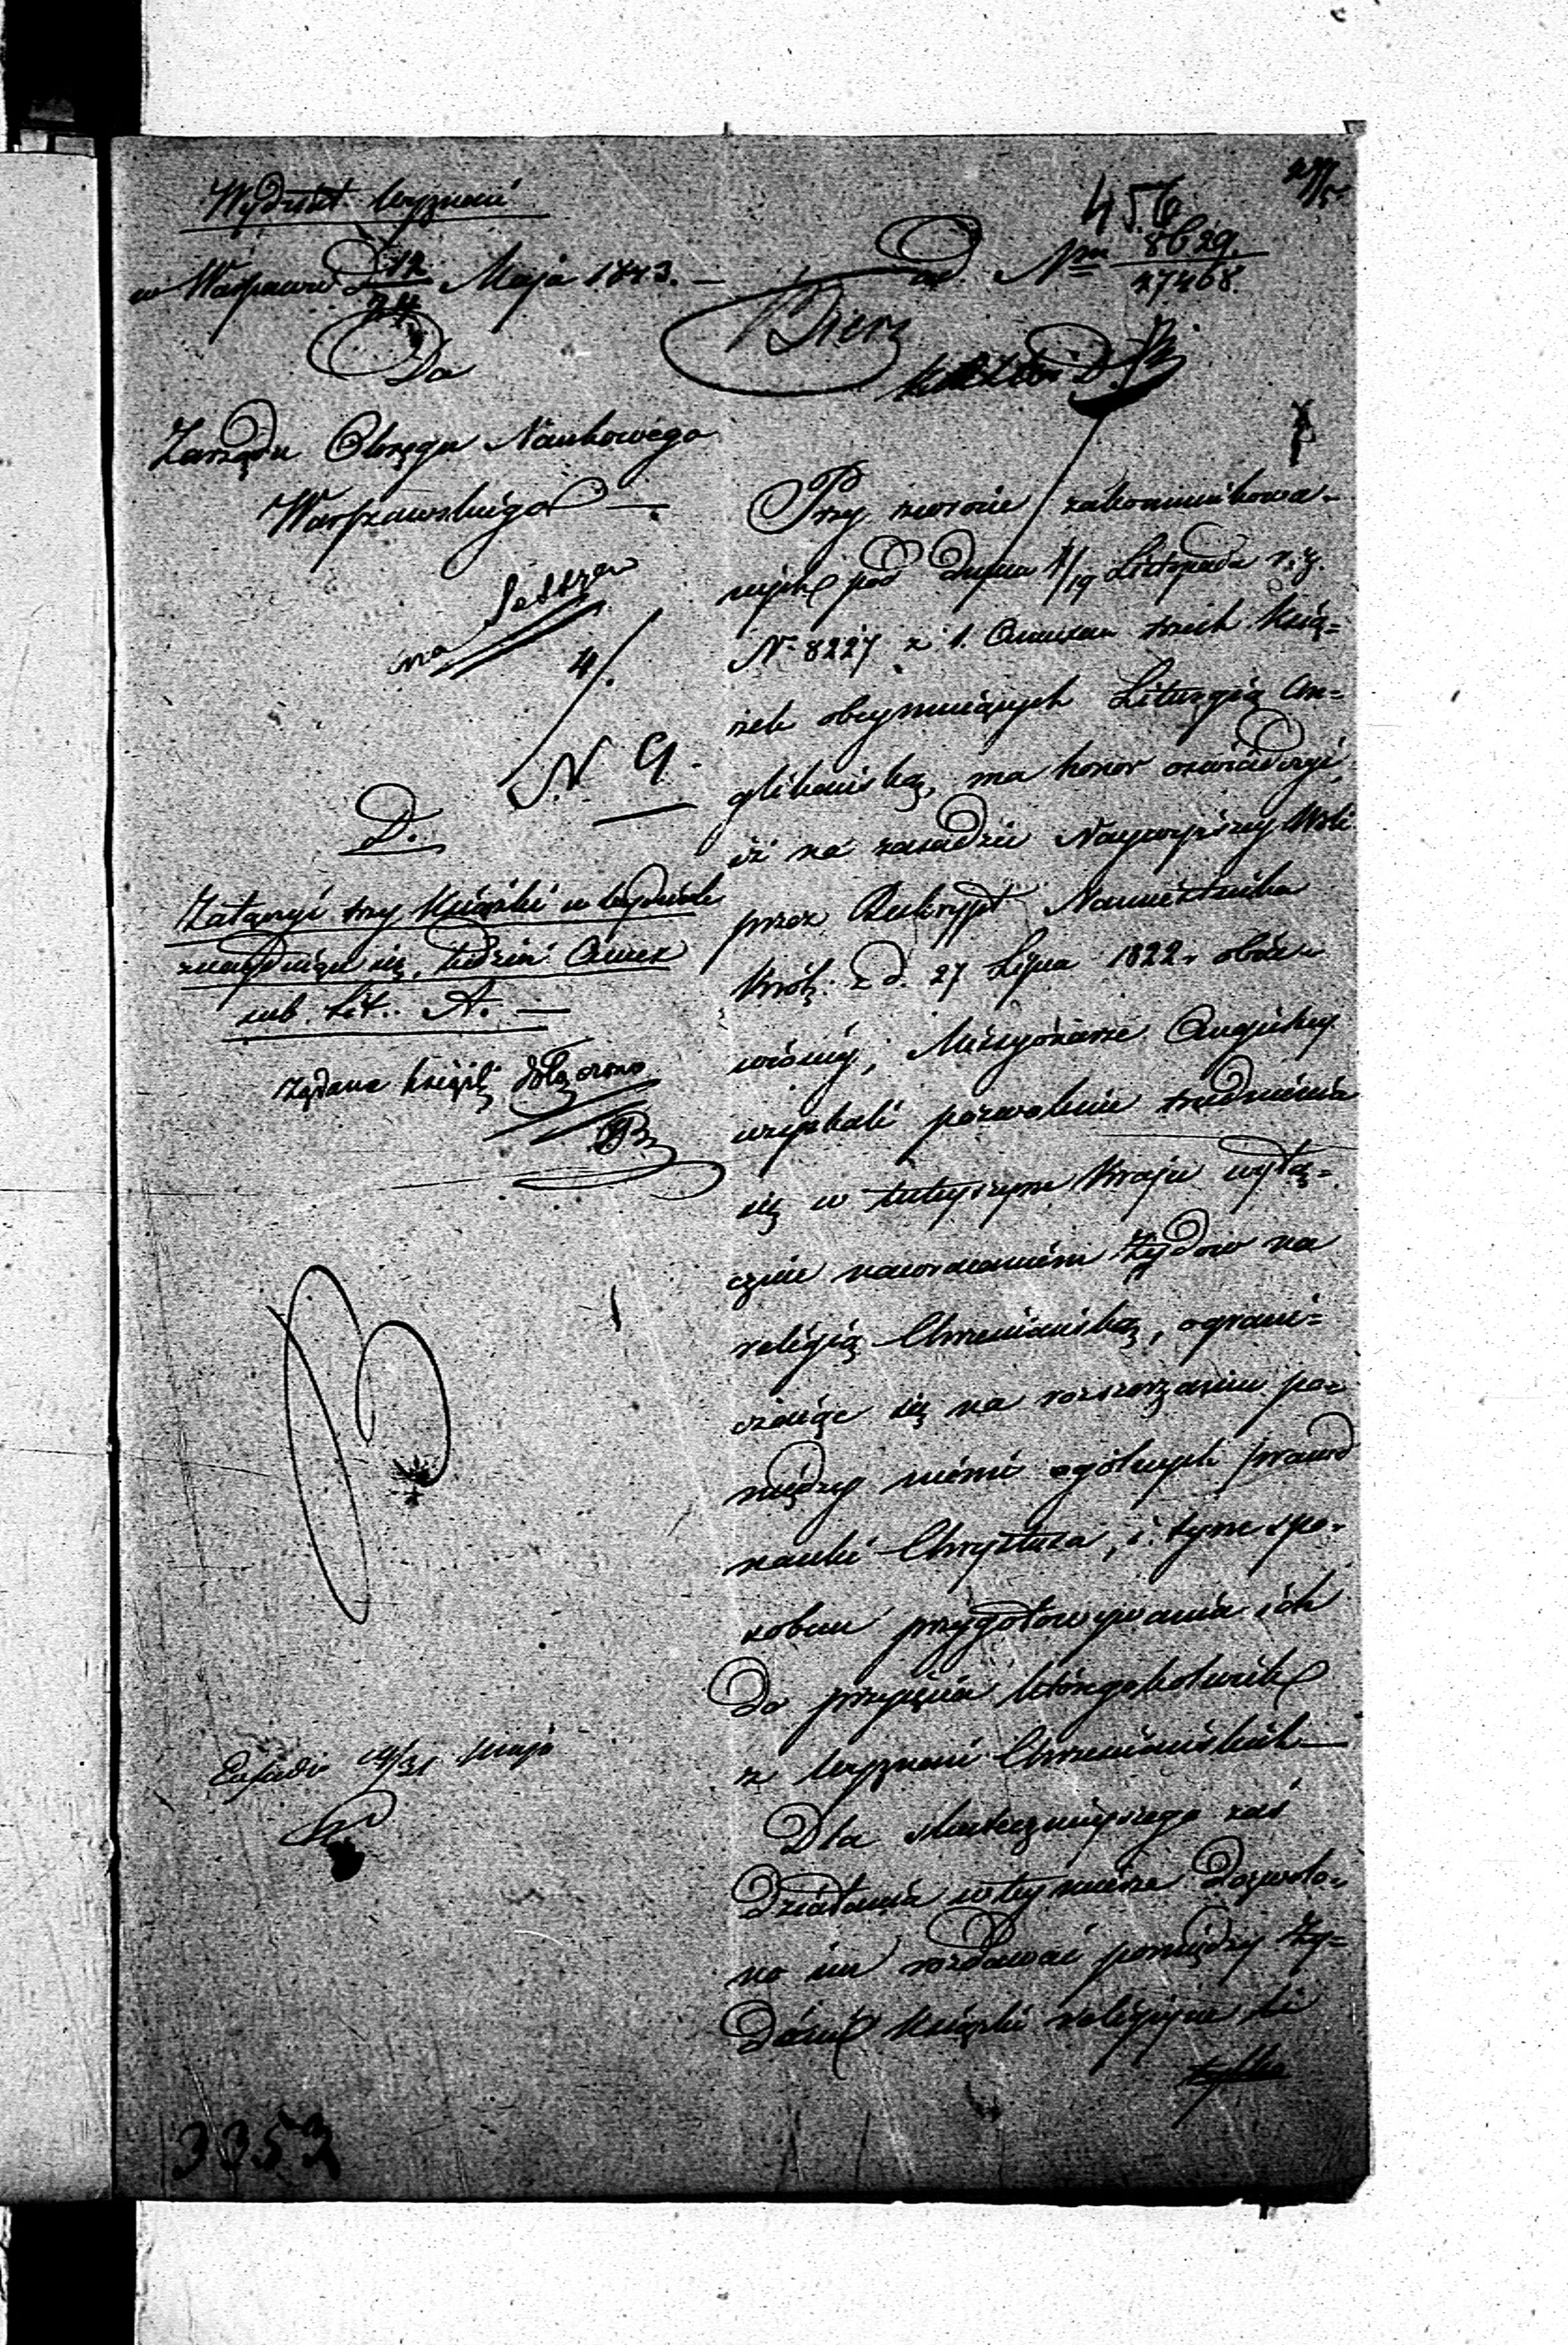 Wydział Wyznań
w Warszawie d 12/24 Maja 1843. —
Do
Zarządu Okręgu Naukowego
Warszawskiego —
na
4/.
N 9.
D.
Załączyć trzy Książki w Wydziale
znajdujące się, tudzież Annex
sub. Lit. A. —
żądane książki dołączono
14/31 Maja
3353
456
ad Nrm 8629.
27468.
Przy zwrocie zakommunikowa-
nych pod dniem /19 Listopada r. z.
N. 8227 z 1. Annexem trzech Ksią=
żek obejmujących Liturgią An=
glikańską, ma honor oświadczyć,
iż na zasadzie Naywyższey Woli
przez Reskrypt Namiestnika
Król: z d. 27 Lipca 1822 r. obja-
wioney, Missyonarze Angielscy
uzyskali pozwolenie trudnienia
się w tuteyszym Kraju wyłą=
cznie nawracaniem Żydów na
religią Chrześciańską, ograni=
czaiąc się na rozszerzaniu po-
między niémi ogólnych prawd
nauki Chrystusa, i tym spo-
sobem przygotowywania ich
do przyjęcia któregokolwiek
z Wyznań Chrześciańskich —
Dla skuteczniejszego zaś
działania w tey mierze dozwolo-
no im rozdawać pomiędzy Ży=
dami Książki religijne li
tylko